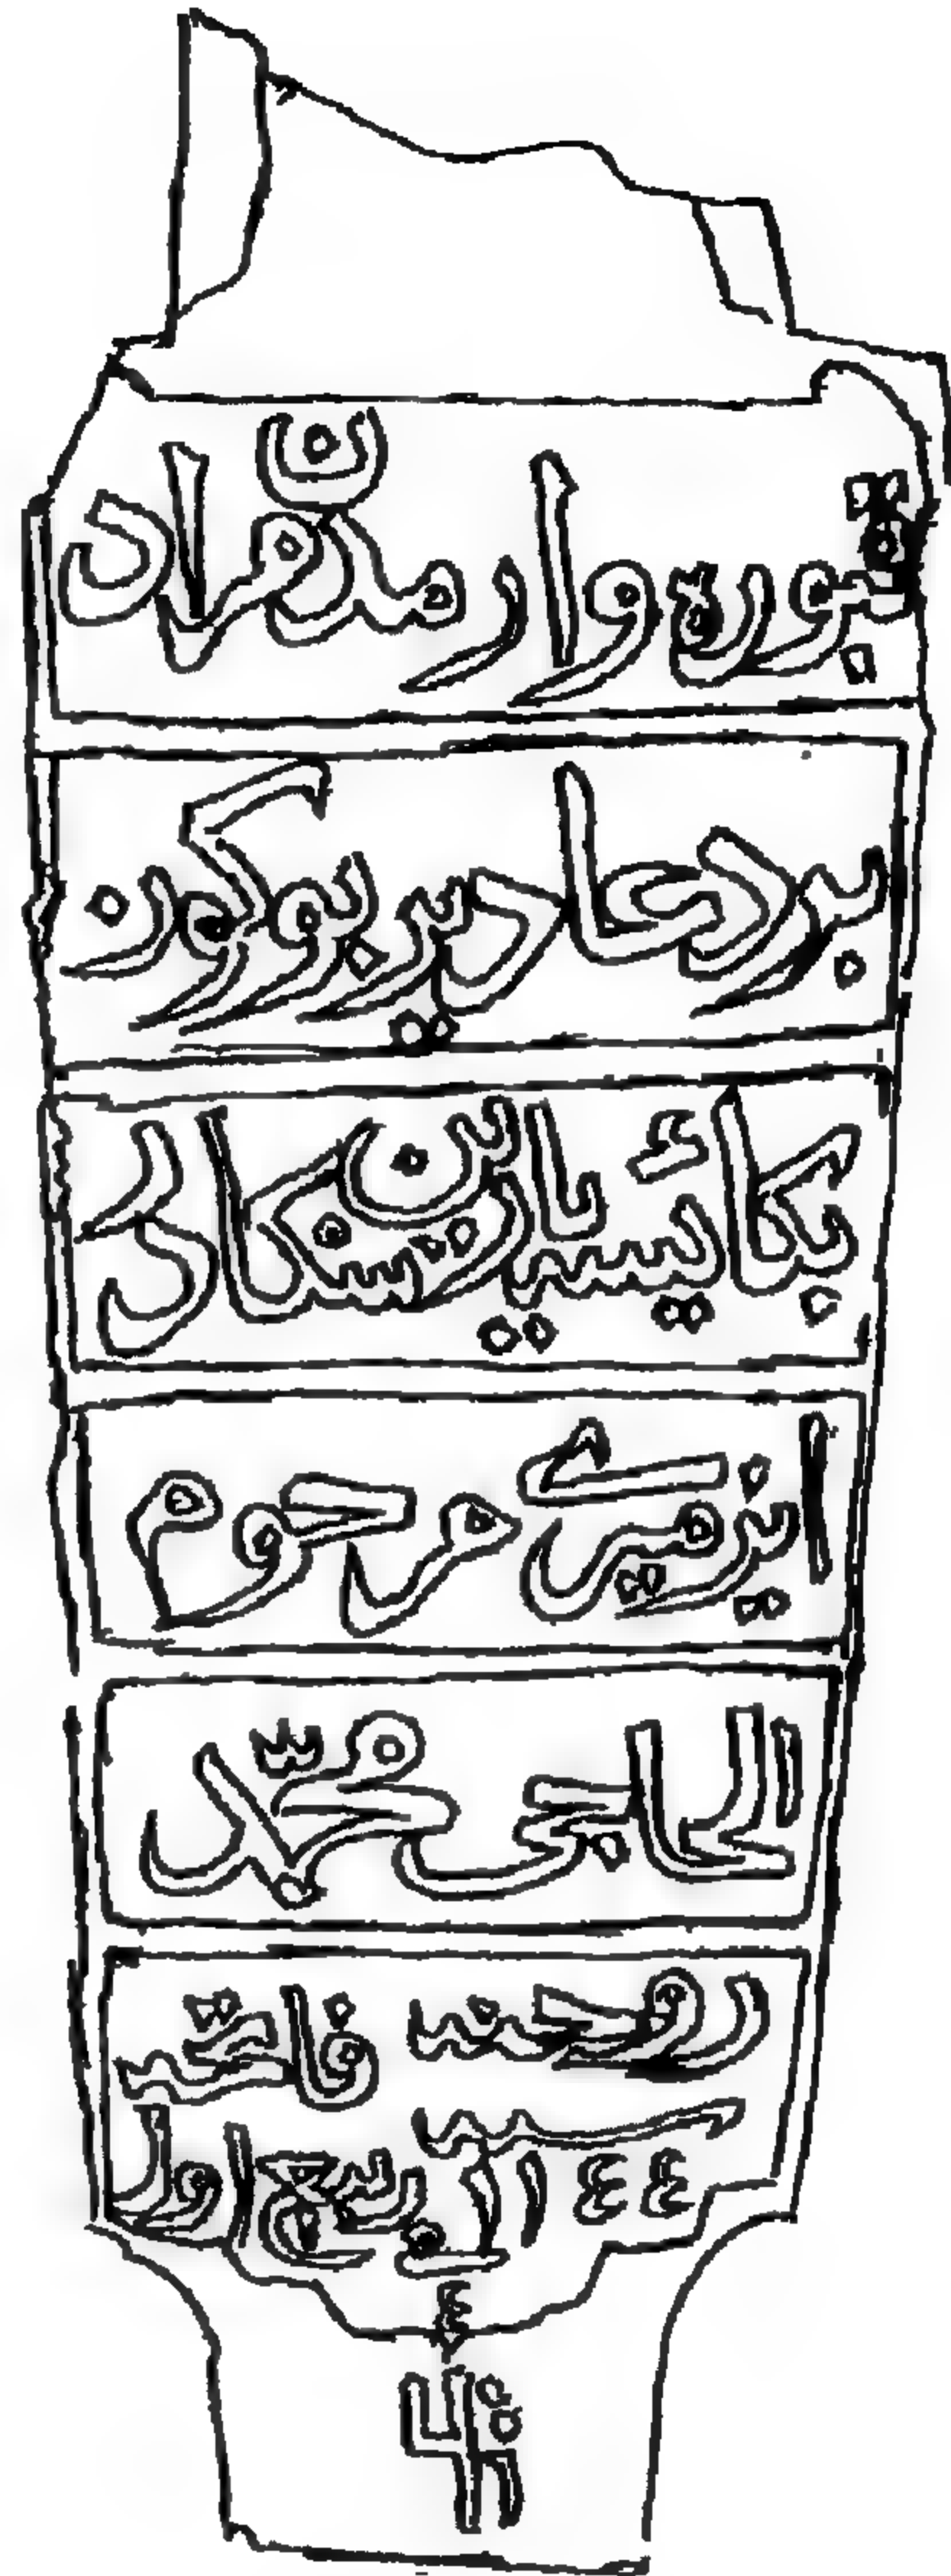 قبوره وارمدن مراد
بر دعادير بو كون
بكا ئيسه يارين سكادر
مرحوم
الحاجى محمد
روحنه فاتحه
سنه ١١٤٤ ربيع اول
٤